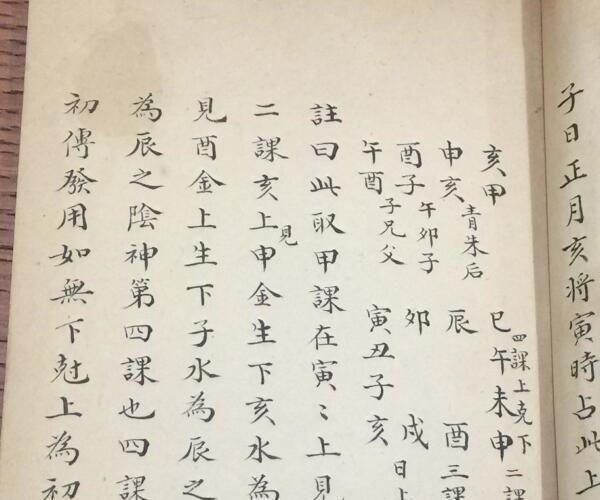 子日正月亥將寅時占此上
亥甲
巳午未申
四課上克下
二課
申亥
青朱后
辰
酉
三課
酉子
午卯子
卯
戌
日上
午酉
子兄父
寅丑子亥
註曰此取甲課在寅〻上見
二課亥上見申金生下亥水為
見酉金上生下子水為辰之
為辰之陰神第四課也四課
初傳發用如無下尅上為初